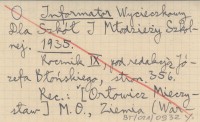 O Informator Wycieczkowy
Dla Szkół i Młodzieży Szkol-
nej. 1935.
Rocznik IX pod redakcją Jó-
zefa Błońskiego, stron 356.
Rec.: [Orłowicz Mieczy-
sław] M.O., Ziemia (War-